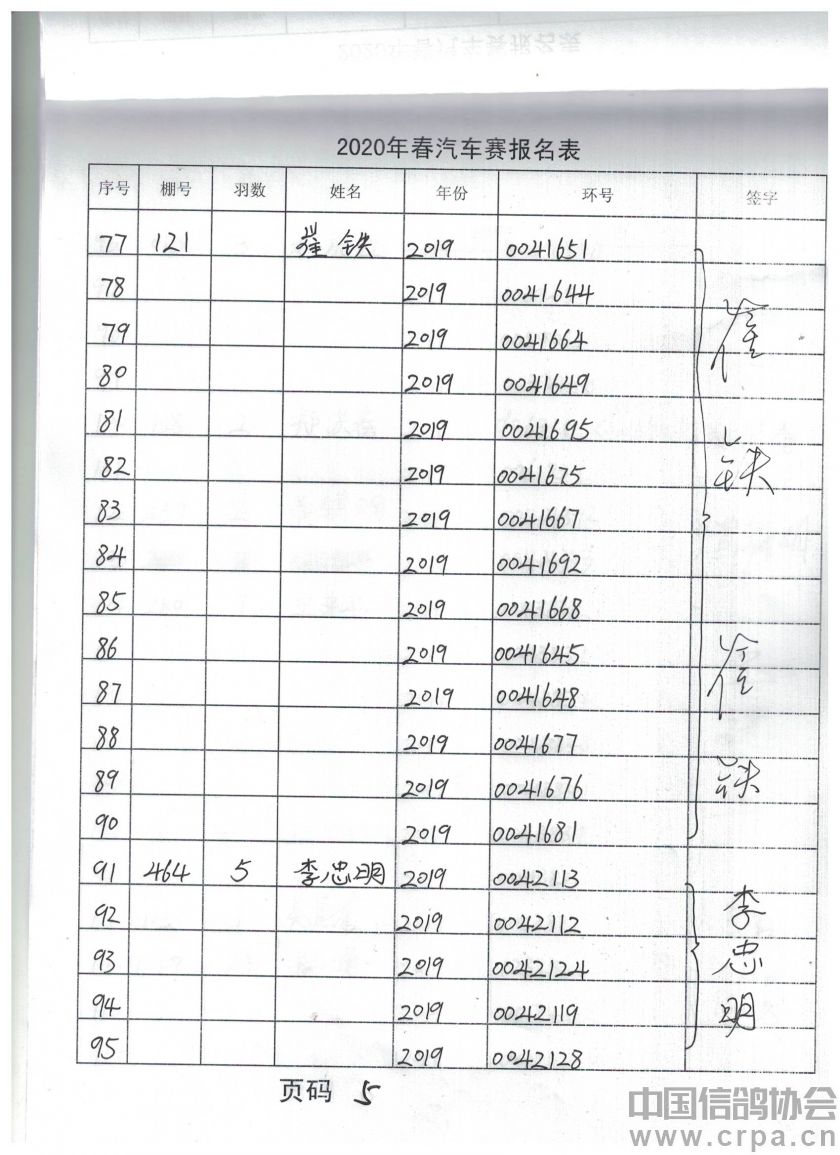 2020年春汽车赛报名表
序号 棚号 羽数 姓名 年份 环号 签字
77 121 崔铁 2019 0041651
78 2019 0041644
79 2019 0041664
80 2019 0041649
81 2019 0041695
82 2019 0041675
83 2019 0041667
84 2019 0041692
85 2019 0041668
86 2019 0041645
87 2019 0041648
88 2019 0041677
89 2019 0041676
90 2019 0041681
崔铁
崔铁
91 464 5 李忠明 2019 0042113
92 2019 0042112
93 2019 0042124
94 2019 0042119
95 2019 0042128
李忠明
页码 5
中国信鸽协会
www.crpa.cn